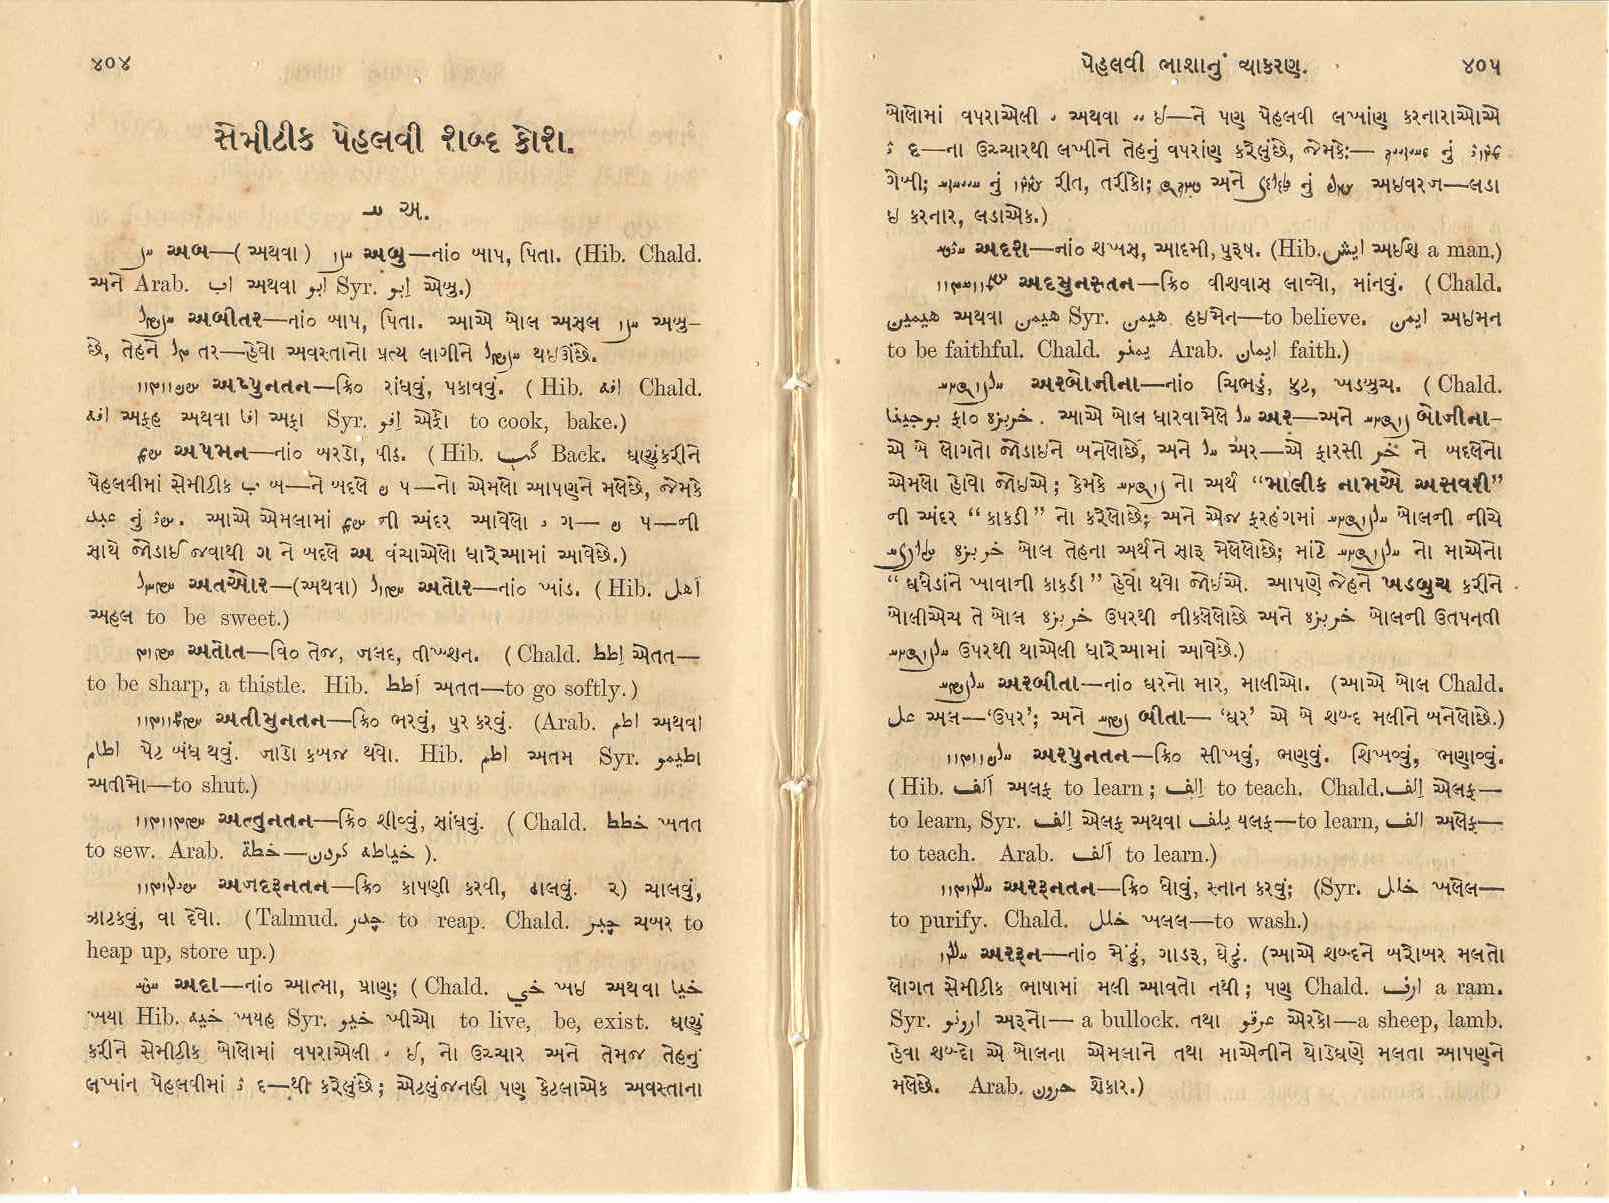 ૪૦૪
સેમીટીક પેહલવી શબ્દ કોશ.
અ.
અબ—( અથવા ) અબુ—નાં૦ બાપ, પિતા. (Hib. Chald.
અને Arab. اب અથવા ابو Syr. ابو એબુ.)
અબીતર—નાં૦ બાપ, પિતા. આએ બોલ અસલ અબુ-
છે, તેહને તર—હેવો અવસ્તાનો પ્રત્ય લાગીને થઇઊંછે.
અપ્પુનતન—ક્રિ૦ રાંધવું, પકાવવું. ( Hib. افه Chald.
افه અફહ અથવા افا અફા Syr. افو એફો to cook, bake.)
અપમન—નાં૦ બરડો, પીઠ. ( Hib. گب Back. ઘણુંકરીને
પેહલવીમાં સેમીટીક ب બ—ને બદલે પ—નો એમલો આપણને મલેછે, જેમકે
નું . આએ એમલામાં ની અંદર આવેલો ગ— પ—ની
સાથે જોડાઈ જવાથી ગ ને બદલે અ વંચાએલો ધારેઆમાં આવેછે.)
અતઓર—(અથવા) અતોર—નાં૦ ખાંડ. ( Hib. اهل
અહલ to be sweet.)
અતોત—વિ૦ તેજ, જલદ, તીખ્શન. ( Chald. اطط એતત—
to be sharp, a thistle. Hib. اطط અતત—to go softly.)
અતીમુનતન—ક્રિ૦ ભરવું, પુર કરવું. (Arab. اطم અથવા
اطام પેટ બંધ થવું. જાડો કબજ થવો. Hib. اطم અતમ Syr. اطيمو
અતીમો—to shut.)
અત્તુનતન—ક્રિ૦ શીવ્વું, સાંધવું. ( Chald. خطط ખતત
to sew. Arab. خياطه كردن—خطة ).
અજદરૂનતન—ક્રિ૦ કાપણી કરવી, ઢાલવું. ૨) ચાલવું,
ઝાટકવું, વા દેવો. ( Talmud. to reap. Chald. ચબર to
heap up, store up.)
અદા—નાં૦ આત્મા, પ્રાણ; ( Chald. خي ખઇ અથવા خيا
ખયા Hib. خيه ખયહ Syr. خيو ખીઓ to live, be, exist. ઘણું
કરીને સેમીટીક બોલોમાં વપરાએલી ઈ, નો ઉચ્ચાર અને તેમજ તેહનું
લખાંન પેહલવીમાં દ—થી કરેલુંછે ; એટલુંજનહી પણ કેટલાએક અવસ્તાના
પેહલવી ભાશાનું વ્યાકરણ.
૪૦૫
બોલોમાં વપરાએલી અથવા ઇ—ને પણ પેહલવી લખાંણ કરનારાઓએ
દ—ના ઉચ્ચારથી લખીને તેહનું વપરાંણ કરેલુંછે, જેમકે:— નું
ગેખી; નું રીત, તરીકો; અને નું અઇવરજ—લડા
ઇ કરનાર, લડાએક.)
અદશ—નાં૦ શખસ, આદમી, પુરૂષ. (Hib. ايش અઇશ a man.)
અદમુનસ્તન—ક્રિ૦ વીશવાસ લાવ્વો, માંનવું. ( Chald.
هيمين અથવા هيمن Syr. هيمن હઇમેન—to believe. ايمن અઇમન
to be faithful. Chald. يمنو Arab. ايمان faith.)
અરબોજીના—નાં૦ ચિભડું, ફુટ, ખડબુચ. ( Chald.
بوجينا ફા૦ خربزه . આએ બોલ ધારવામેલે અર—અને બોજીના-
એ બે લોગતો જોડાઇને બનેલોછે, અને અર—એ ફારસી خر ને બદલેનો
એમલો હોવો જોઇએ ; કેમકે નો અર્થ “માલીક નામએ અસવરી”
ની અંદર “ કાકડી ” નો કરેલોછે; અને એજ ફરહંગમાં બોલની નીચે
خربزه બોલ તેહના અર્થને સારૂ મેલેલોછે; માંટે નો માએનો
“ ધધેડાંને ખાવાની કાકડી ” હેવો થવો જોઈએ. આપણે જેહને ખડબુચ કરીને
બોલીએચ તે બોલ خربزه ઉપરથી નીકલેલોછે અને خربزه બોલની ઉતપનતી
ઉપરથી થાએલી ધારેઆમાં આવેછે.)
અરબીતા—નાં૦ ઘરનો માર, માલીઓ. (આએ બોલ Chald.
عل અલ—‘ઉપર’; અને બીતા— ‘ઘર’ એ બે શબ્દ મલીને બનેલોછે.)
અરપુનતન—ક્રિ૦ સીખવું, ભણવું. શિખવ્વું, ભણાવ્વું.
( Hib. الف અલફ to learn ; الف to teach. Chald. الف એલફ—
to learn, Syr. الف એલફ અથવા يلف યલફ—to learn, الف અલેફ—
to teach. Arab. الف to learn.)
અરરૂનતન—ક્રિ૦ ધોવું, સ્નાન કરવું; (Syr. خلل ખલેલ—
to purify. Chald. خلل ખલલ—to wash.)
અરરૂન—નાં૦ મેંઢું, ગાડરૂ, ઘેટું. (આએ શબ્દને બરોબર મલતો
લોગત સેમીટીક ભાષામાં મલી આવતો નથી ; પણ Chald. ارف a ram.
Syr. ارونو અરૂનો— a bullock. તથા عرقو એરકો—a sheep, lamb.
હેવા શબ્દો એ બોલના એમલાને તથા માએનીને થોડેઘણે મલતા આપણને
મલેછે. Arab. حرون શેકાર.)